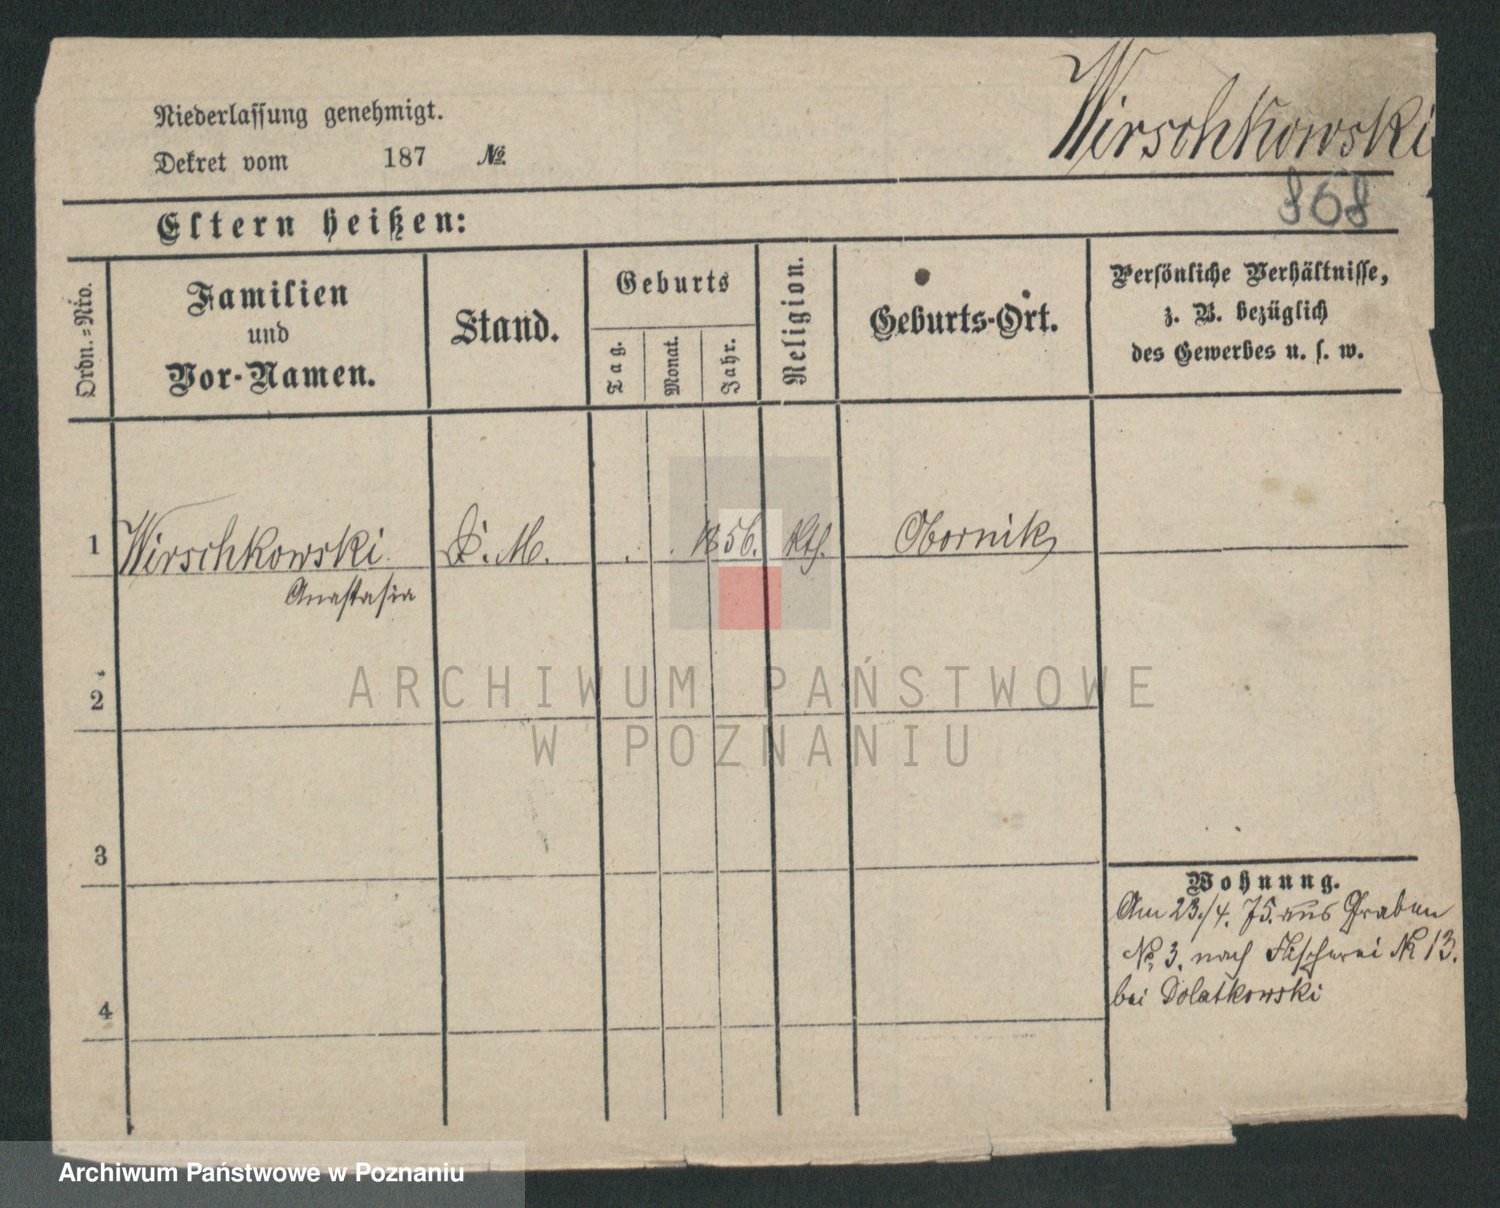 Wirschkowski
Niederlassung genehmigt.
Dekret vom 187 №
868
Eltern heißen:
Ordn.=Nro.
Familien
und
Vor-Namen.
Stand.
Geburts
Tag.
Monat.
Jahr.
Religion.
Geburts-Ort.
Persönliche Verhältnisse,
z. B. bezüglich
des Gewerbes u. s. w.
1 Wirschkowski D. M. 1856. kth. Obornik
Anastasia
2
3
4
Wohnung.
Am 23./4. 75. aus Graben
No. 3. nach Fischerei No 13.
bei Dolatkowski
ARCHIWUM PAŃSTWOWE
W POZNANIU
Archiwum Państwowe w Poznaniu